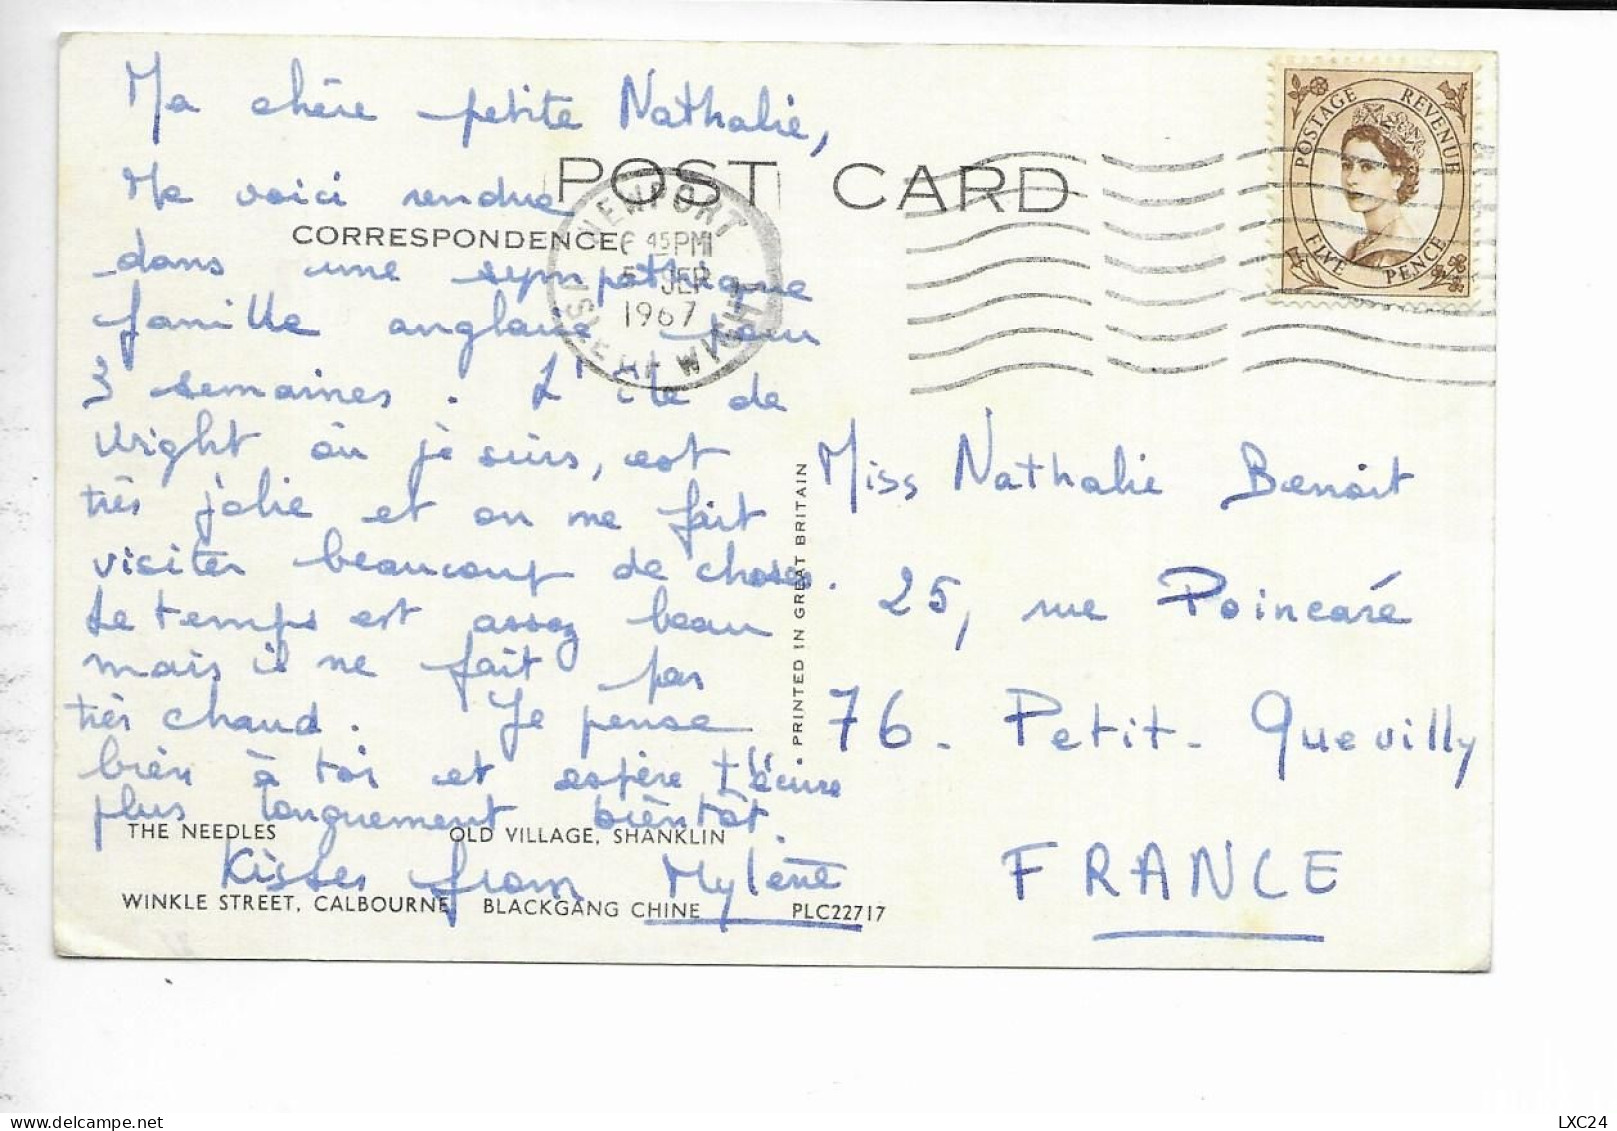 Ma chère petite Nathalie,
POST CARD
Me voici rendue
CORRESPONDENCE
dans une sympathique
famille anglaise pour
3 semaines. L'île de
Wight où je suis, est
très jolie et on me fait
visiter beaucoup de choses.
Le temps est assez beau
mais il ne fait pas
très chaud. Je pense
bien à toi et espère t'écrire
plus longuement bientôt.
Kisses from Mylène
THE NEEDLES OLD VILLAGE, SHANKLIN
WINKLE STREET, CALBOURNE BLACKGANG CHINE PLC22717
PRINTED IN GREAT BRITAIN
NEWPORT
6 45 PM
5 SEP
1967
ISLE OF WIGHT
POSTAGE REVENUE
FIVE PENCE
Miss Nathalie Benoit
25, rue Poincaré
76 - Petit-Quevilly
FRANCE
LXC24